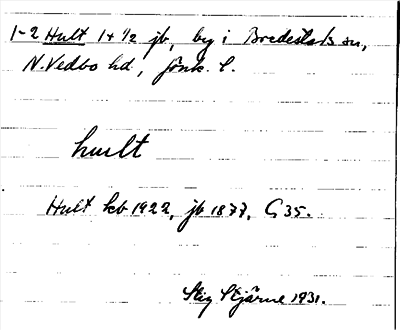 1-2 Hult 1+½ jb, by i Bredestads sn,
N. Vedbo hd, Jönk. l.
hult
Hult kb 1922, jb 1877, G 35.
Stig Stjärne 1931.